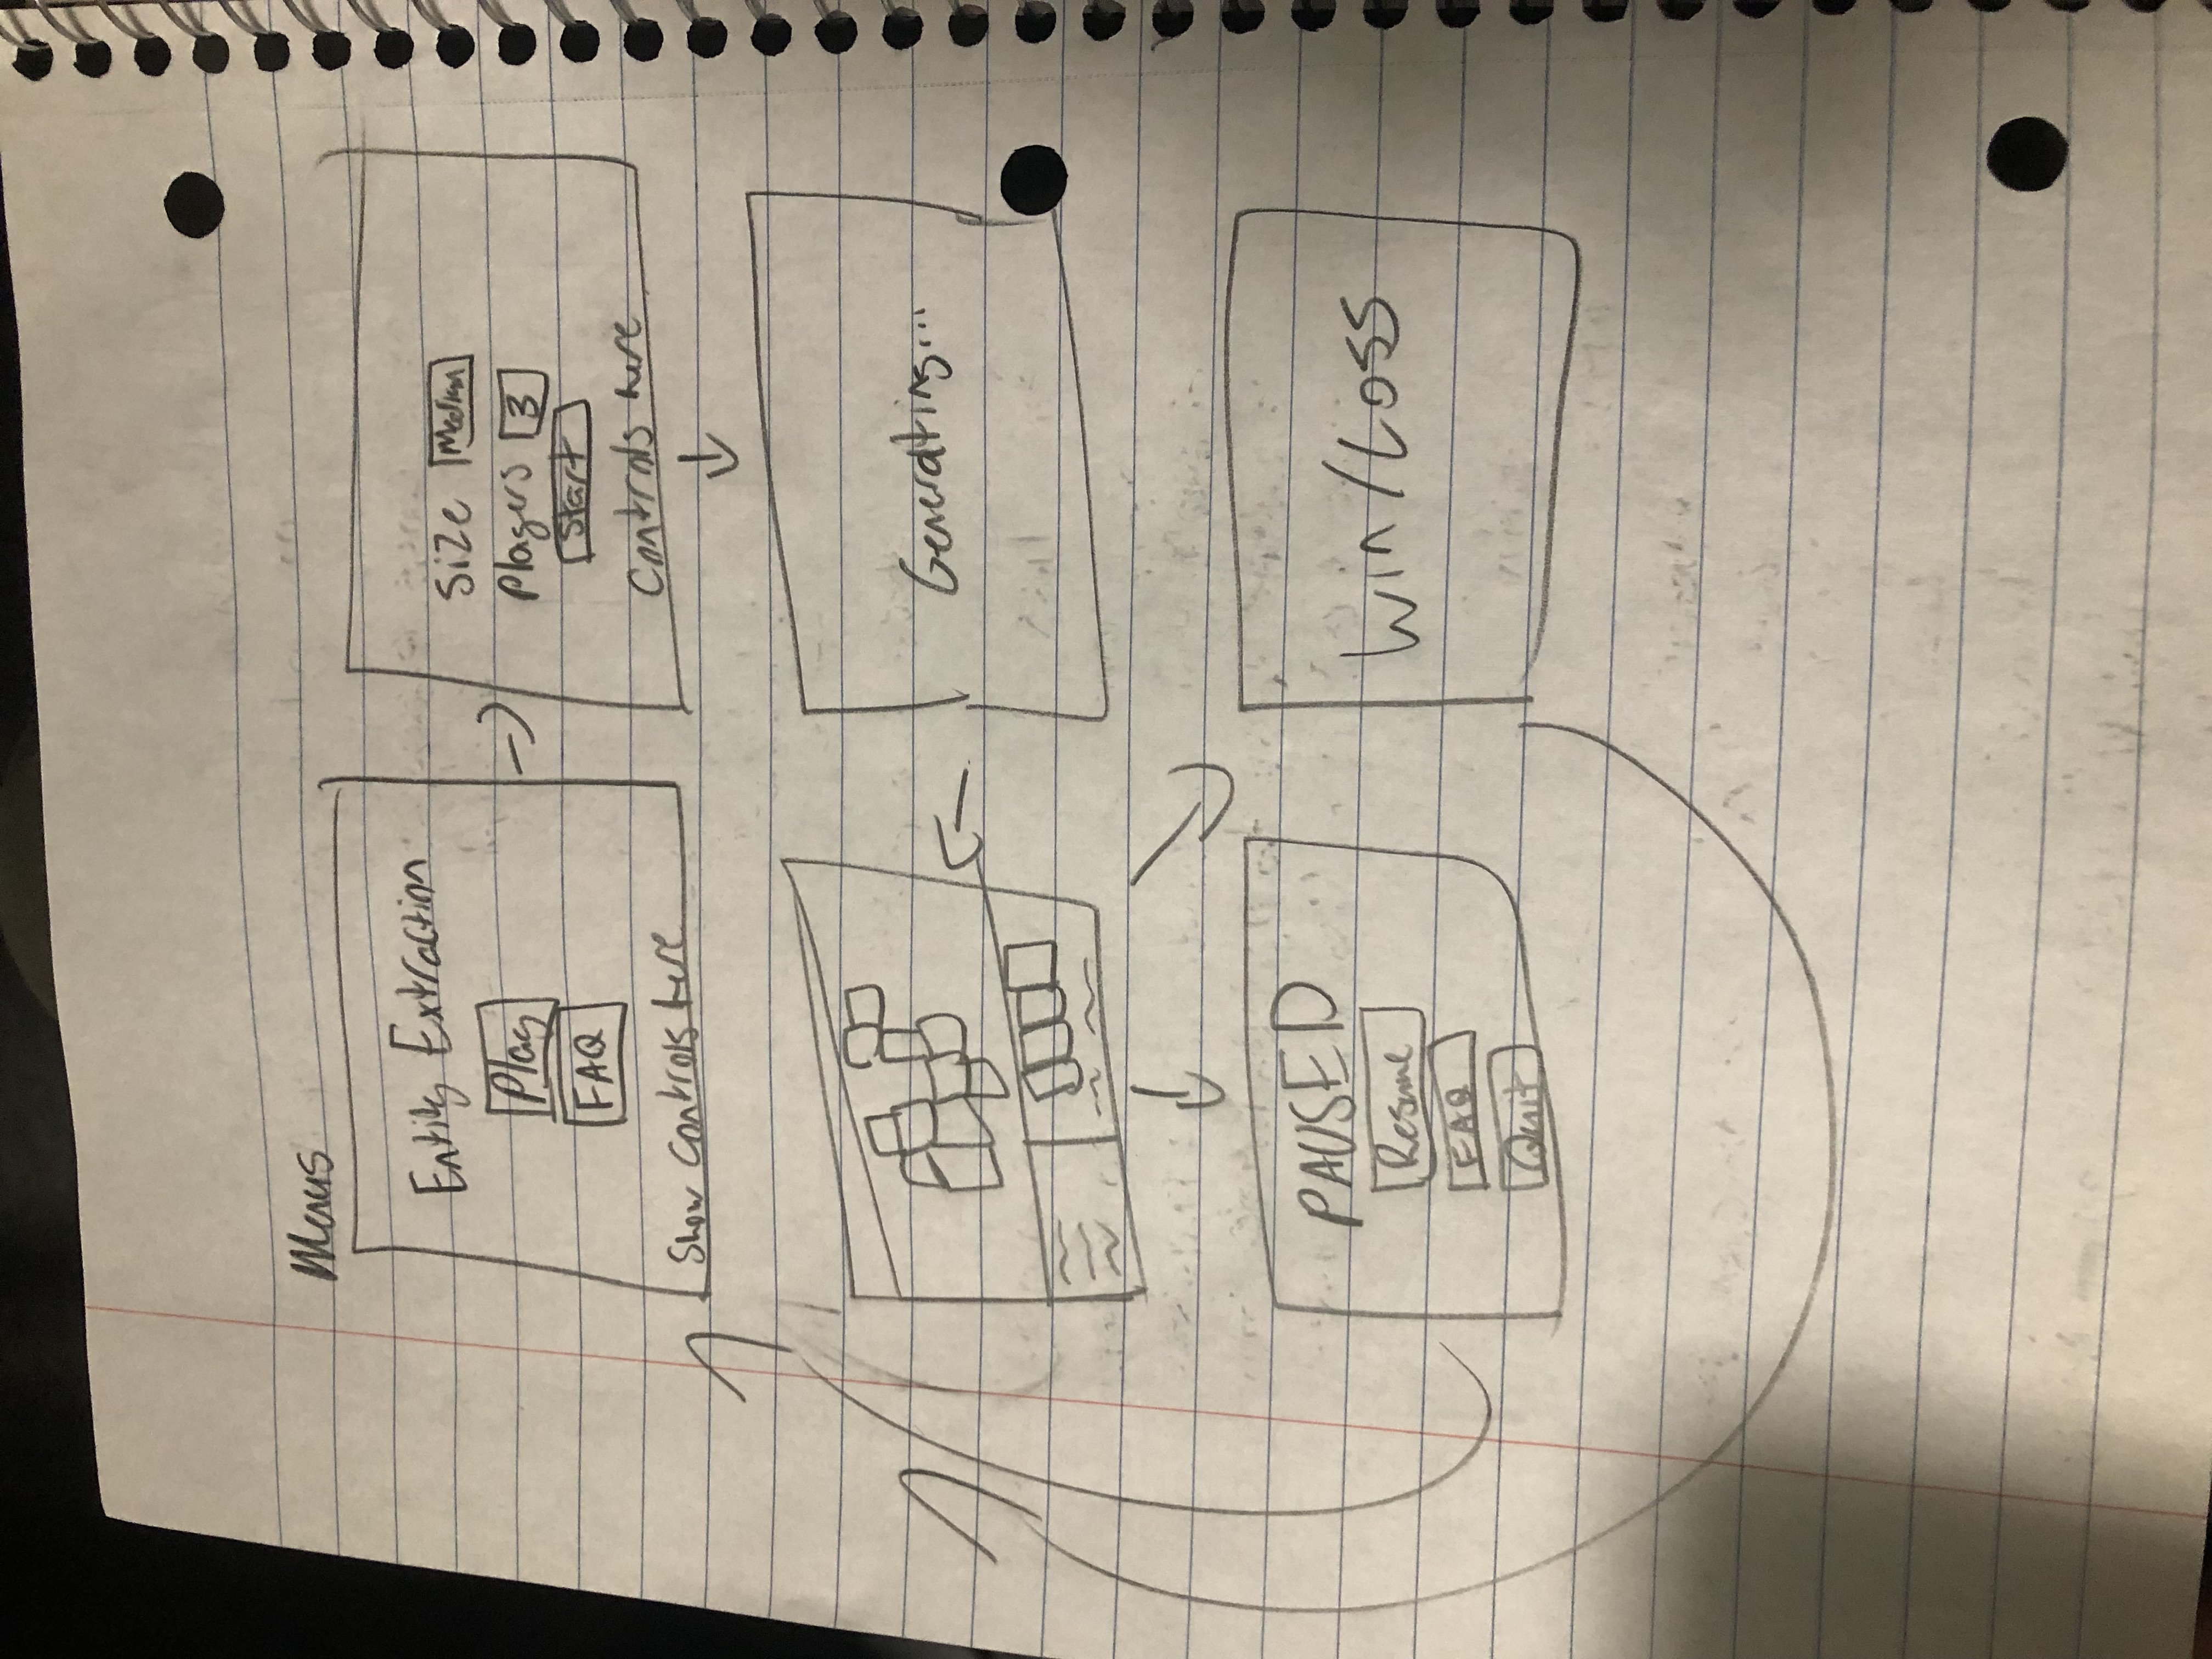 Menus
Entity Extraction
Play
FAQ
Show Controls here
Size Medium
Players 3
Start
Controls here
Generating...
PAUSED
Resume
FAQ
Quit
Win/Loss